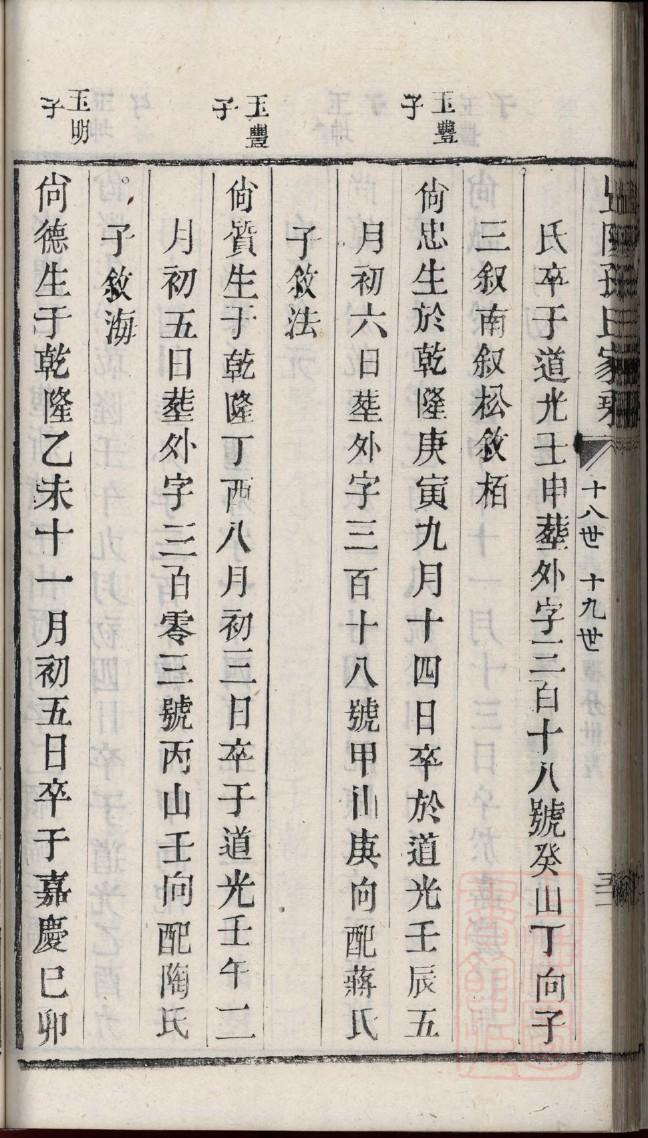 孫氏家乘
十八世 十九世
氏卒于道光壬申塟外字三百十八號癸山丁向子
三叙南叙松敘栢
玉豐子
尙忠生於乾隆庚寅九月十四日卒於道光壬辰五
月初六日塟外字三百十八號甲山庚向配蔣氏
子敘法
玉豐子
尙質生于乾隆丁酉八月初三日卒于道光壬午二
月初五日塟外字三百零三號丙山壬向配陶氏
子敘海
玉明子
尙德生于乾隆乙未十一月初五日卒于嘉慶巳卯